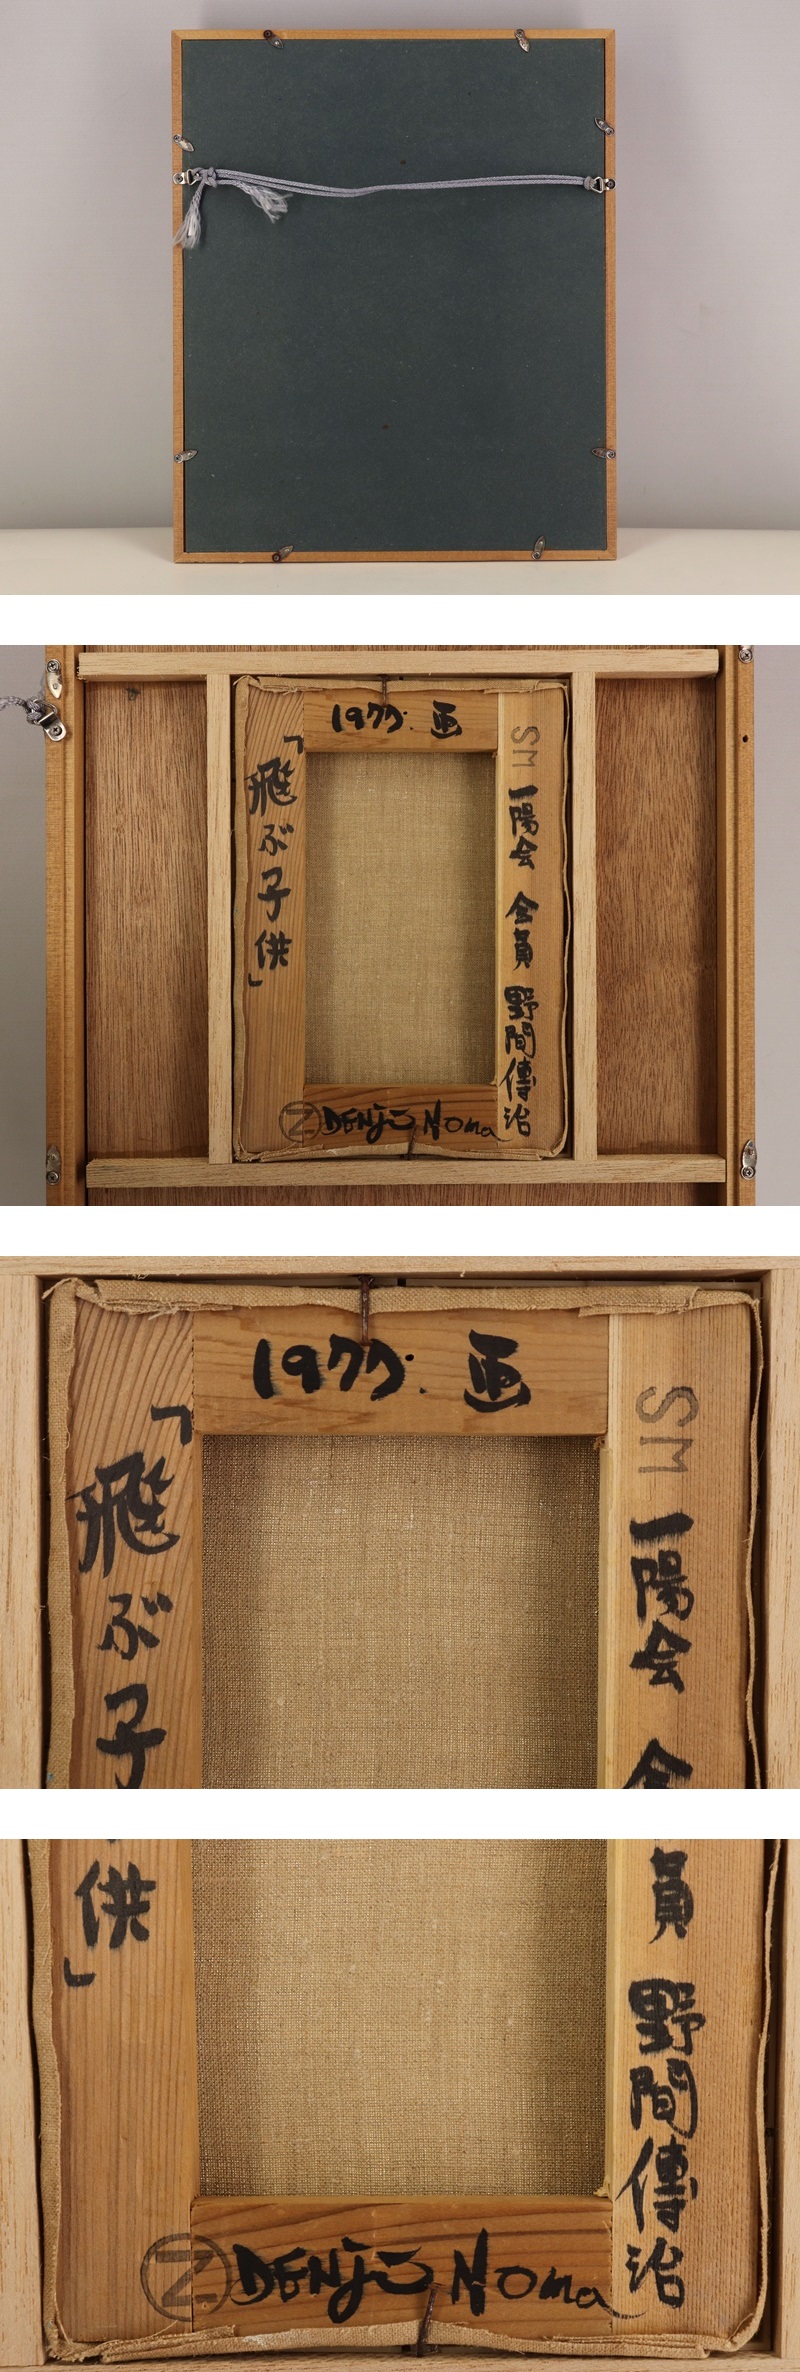 1977. 画
SM
一陽会 会員 野間傳治
「飛ぶ子供」
Z DENJi Noma
1977. 画
SM
一陽会 会
「飛ぶ子
員 野間傳治
供」
Z DENJi Noma